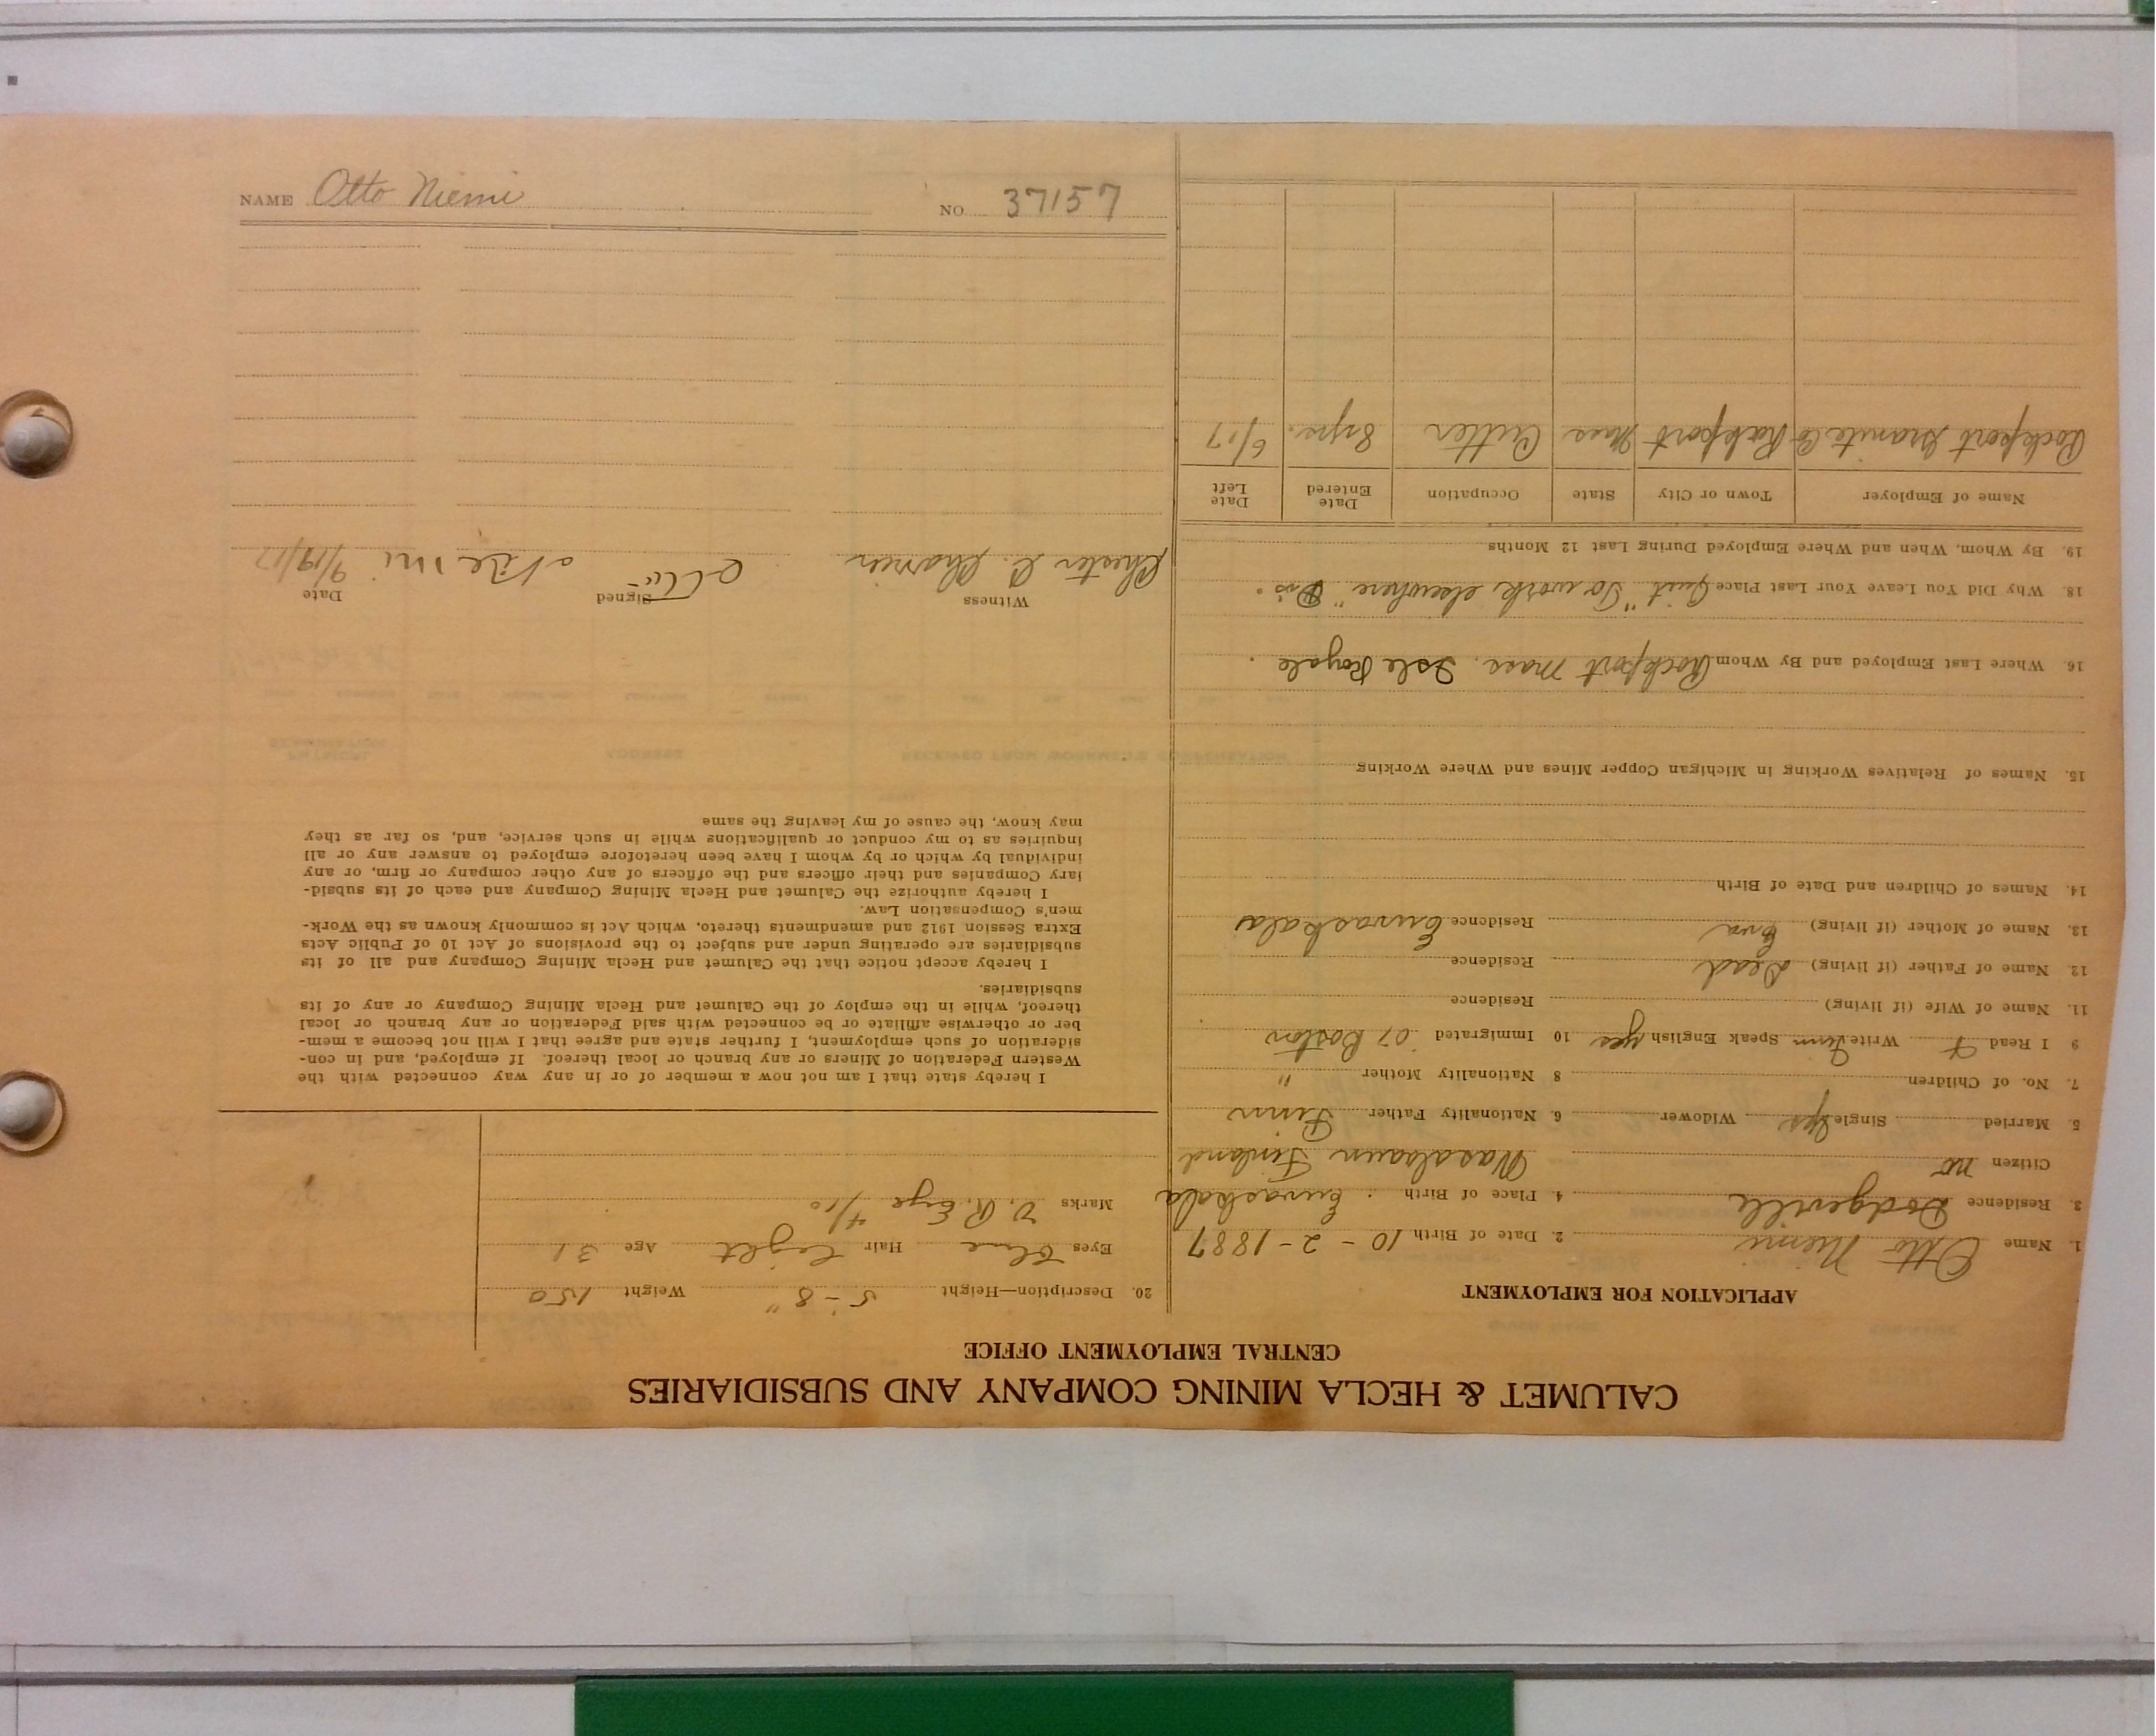 CALUMET & HECLA MINING COMPANY AND SUBSIDIARIES
CENTRAL EMPLOYMENT OFFICE
APPLICATION FOR EMPLOYMENT
1. Name Otto Niemi
2. Date of Birth 10 - 2 - 1887
3. Residence Dodgeville
4. Place of Birth
Citizen no
Finland
5 Married Single yes Widower
6. Nationality Father Finn
7. No. of Children
8 Nationality Mother "
9 I Read F Write Finn Speak English yes 10 Immigrated '07 Boston
11. Name of Wife (if living) Residence
12. Name of Father (if living) Dead Residence
13. Name of Mother (if living) Eva Residence
14. Names of Children and Date of Birth
15. Names of Relatives Working in Michigan Copper Mines and Where Working
16. Where Last Employed and By Whom Rockport Mass. Isle Royale.
18. Why Did You Leave Your Last Place Quit "To work elsewhere"
19. By Whom, When and Where Employed During Last 12 Months
Name of Employer Town or City State Occupation Date Entered Date Left
Rockport Granite Co Rockport Mass Cutter 8 yrs. 6/17
20. Description—Height 5-8" Weight 150
Eyes blue Hair light Age 31
Marks V. R. Eye 4/10
I hereby state that I am not now a member of or in any way connected with the
Western Federation of Miners or any branch or local thereof. If employed, and in con-
sideration of such employment, I further state and agree that I will not become a mem-
ber or otherwise affiliate or be connected with said Federation or any branch or local
thereof, while in the employ of the Calumet and Hecla Mining Company or any of its
subsidiaries.
I hereby accept notice that the Calumet and Hecla Mining Company and all of its
subsidiaries are operating under and subject to the provisions of Act 10 of Public Acts
Extra Session 1912 and amendments thereto, which Act is commonly known as the Work-
men's Compensation Law.
I hereby authorize the Calumet and Hecla Mining Company and each of its subsid-
iary Companies and their officers and the officers of any other company or firm, or any
individual by which or by whom I have been heretofore employed to answer any or all
inquiries as to my conduct or qualifications while in such service, and, so far as they
may know, the cause of my leaving the same
Witness Signed Date
Chester C. 9/19/17
NAME Otto Niemi NO 37157